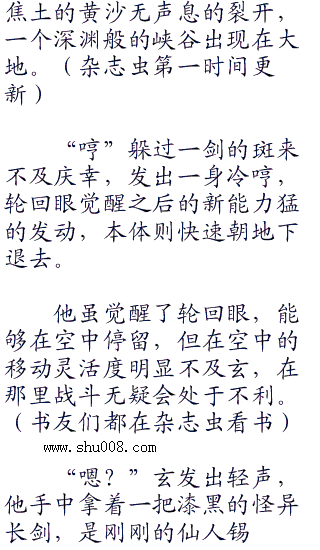 焦土的黄沙无声息的裂开，
一个深渊般的峡谷出现在大
地。（杂志虫第一时间更
新）
“哼”躲过一剑的斑来
不及庆幸，发出一身冷哼，
轮回眼觉醒之后的新能力猛
的发动，本体则快速朝地下
退去。
他虽觉醒了轮回眼，能
够在空中停留，但在空中的
移动灵活度明显不及玄，在
那里战斗无疑会处于不利。
（书友们都在杂志虫看书）
www.shu008.com
“嗯？”玄发出轻声，
他手中拿着一把漆黑的怪异
长剑，是刚刚的仙人锡